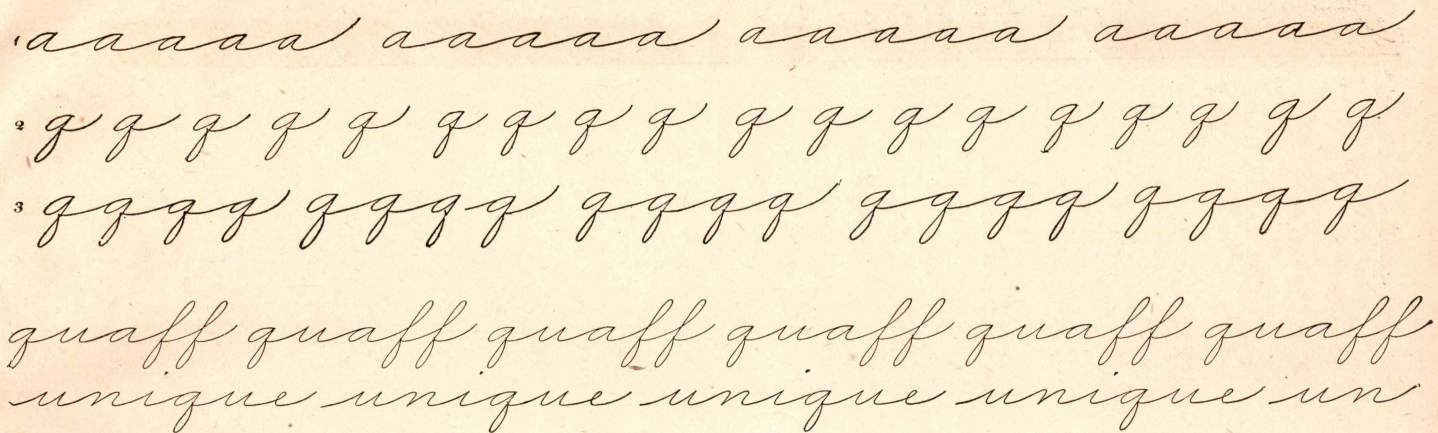 1 aaaaa aaaaa aaaaa aaaaa
2 q q q q q q q q q q q q q q q q q q
3 qqqq qqqq qqqq qqqq qqqq
quaff quaff quaff quaff quaff quaff
unique unique unique unique un